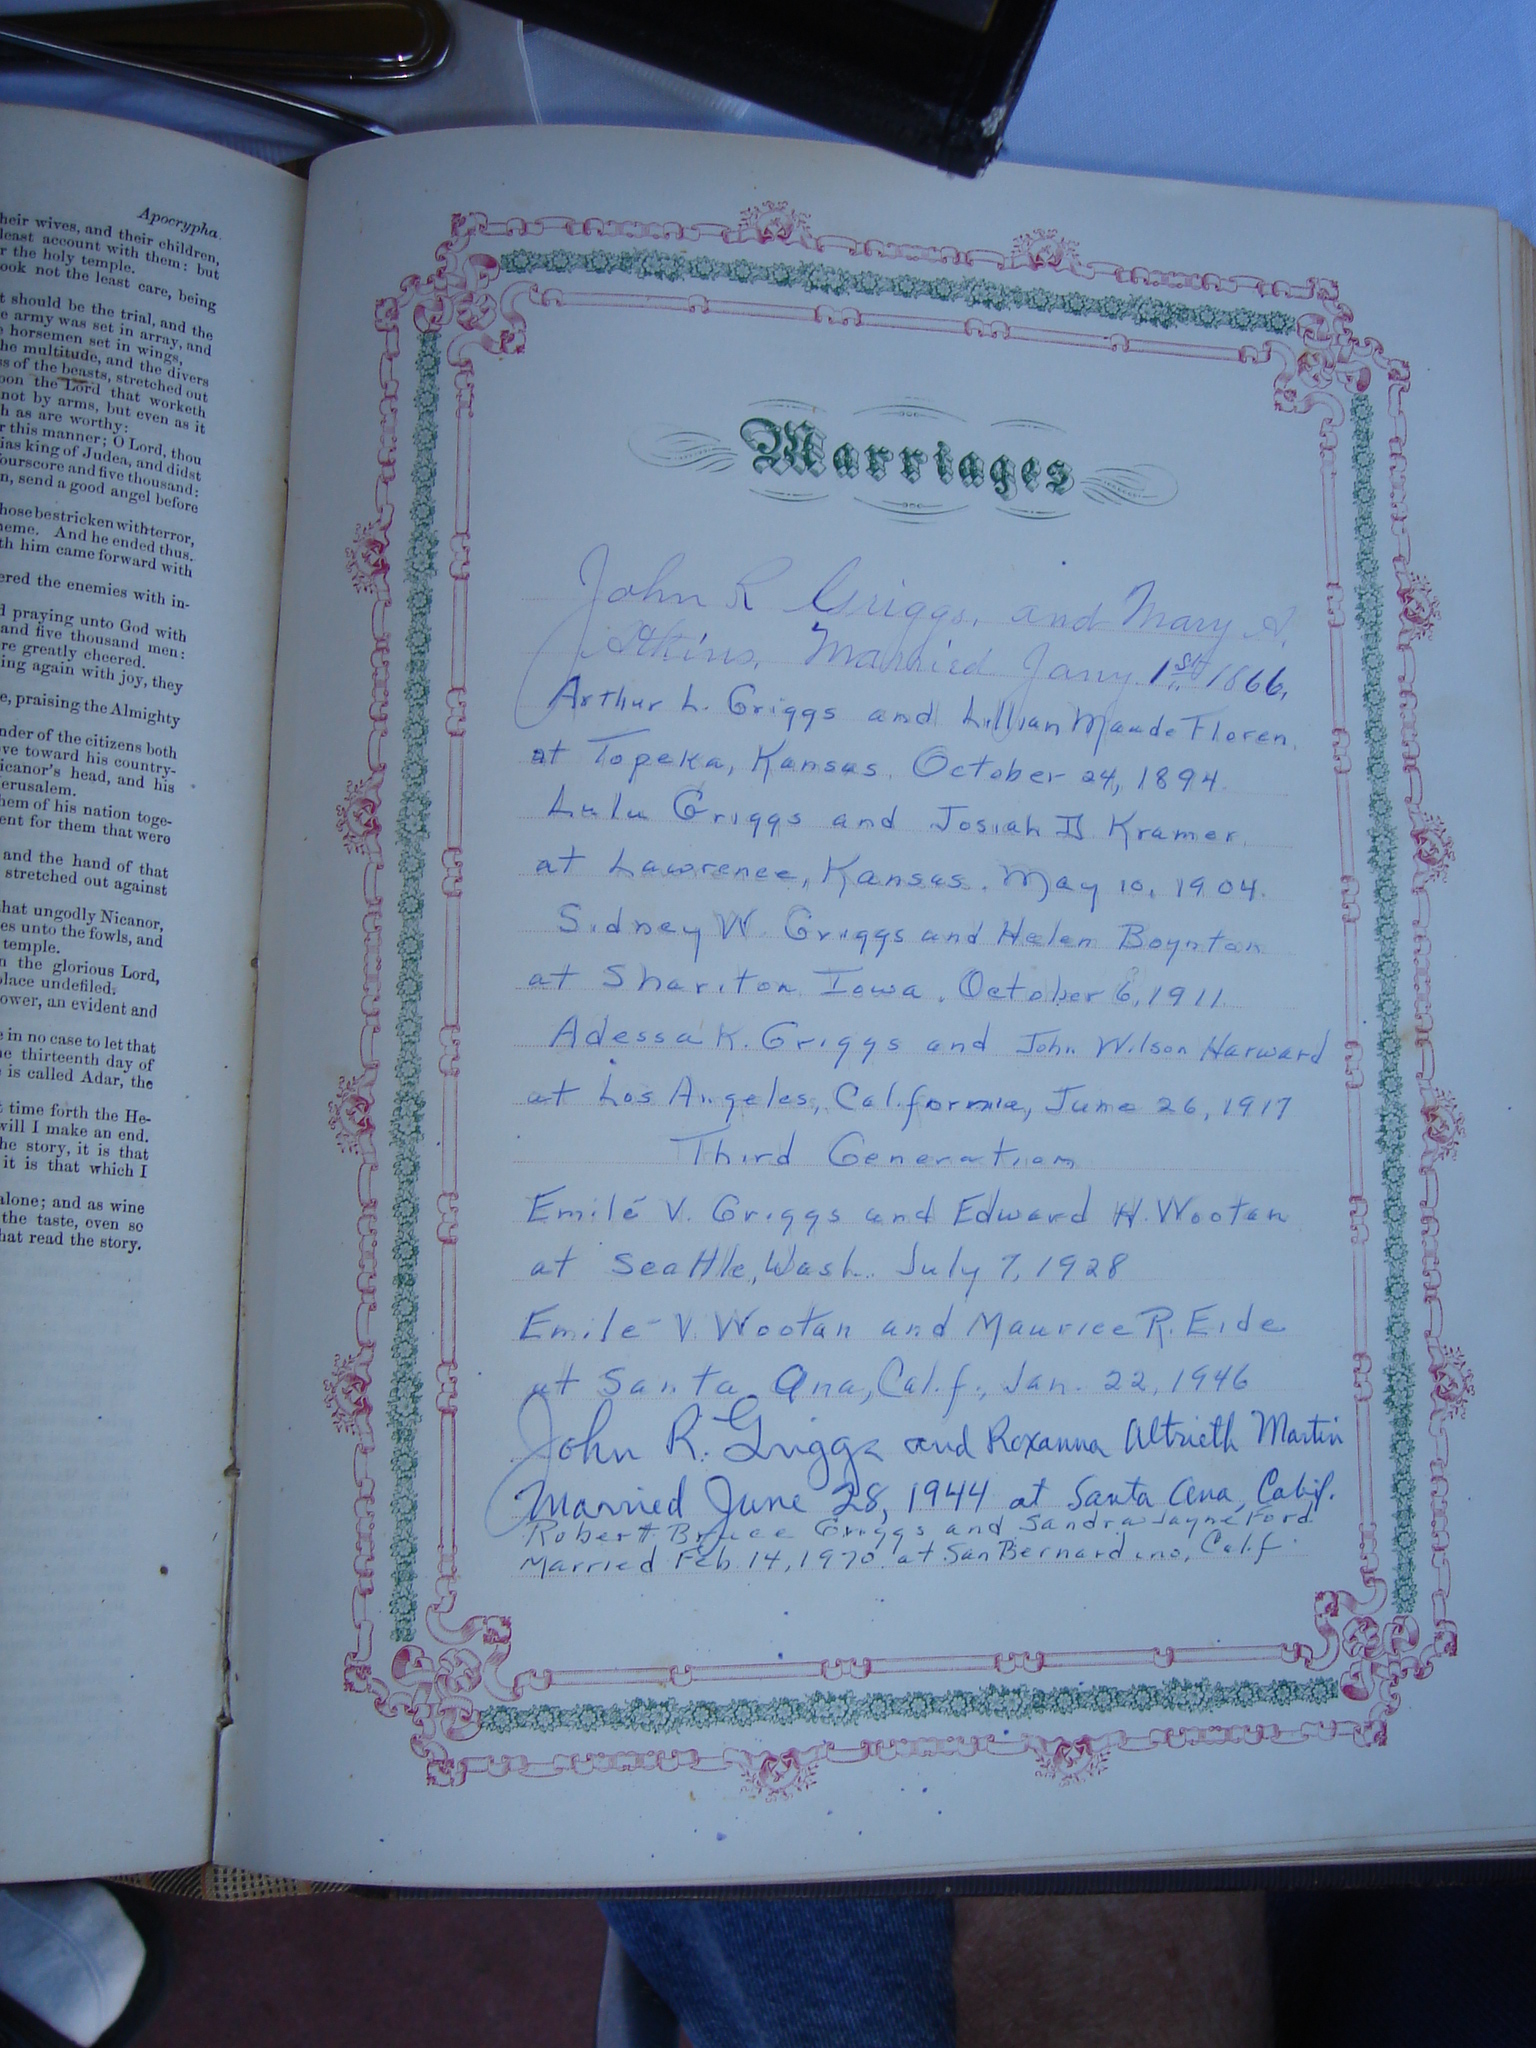 Apocrypha.
heir wives, and their children,
least account with them: but
r the holy temple.
ook not the least care, being
t should be the trial, and the
e army was set in array, and
e horsemen set in wings,
he multitude, and the divers
ss of the beasts, stretched out
oon the Lord that worketh
not by arms, but even as it
h as are worthy:
r this manner; O Lord, thou
ias king of Judea, and didst
ourscore and five thousand:
n, send a good angel before
hose bestricken with terror,
heme. And he ended thus.
th him came forward with
ered the enemies with in-
d praying unto God with
and five thousand men:
re greatly cheered.
ing again with joy, they
e, praising the Almighty
nder of the citizens both
ove toward his country-
icanor's head, and his
erusalem.
hem of his nation toge-
ent for them that were
and the hand of that
stretched out against
hat ungodly Nicanor,
es unto the fowls, and
temple.
n the glorious Lord,
place undefiled.
ower, an evident and
e in no case to let that
he thirteenth day of
e is called Adar, the
t time forth the He-
will I make an end.
he story, it is that
it is that which I
alone; and as wine
the taste, even so
hat read the story.
Marriages
John R Griggs, and Mary A.
Atkins. Married Jany. 1st 1866.
Arthur L. Griggs and Lillian Maude Floren.
at Topeka, Kansas. October 24, 1894.
Lulu Griggs and Josiah B. Kramer.
at Lawrence, Kansas. May 10, 1904.
Sidney W. Griggs and Helen Boynton
at Shariton Iowa. October 6, 1911.
Adessa K. Griggs and John Wilson Harward
at Los Angeles, California, June 26, 1917
Third Generation
Emilé V. Griggs and Edward H. Wootan
at Seattle, Wash. July 7, 1928
Emilé V. Wootan and Maurice R. Eide
at Santa Ana, Calif., Jan. 22, 1946
John R. Griggs and Roxanna Altrieth Martin
Married June 28, 1944 at Santa Ana, Calif.
Robert Bruce Griggs and Sandra Jayne Ford
Married Feb. 14, 1970 at San Bernardino, Calif.